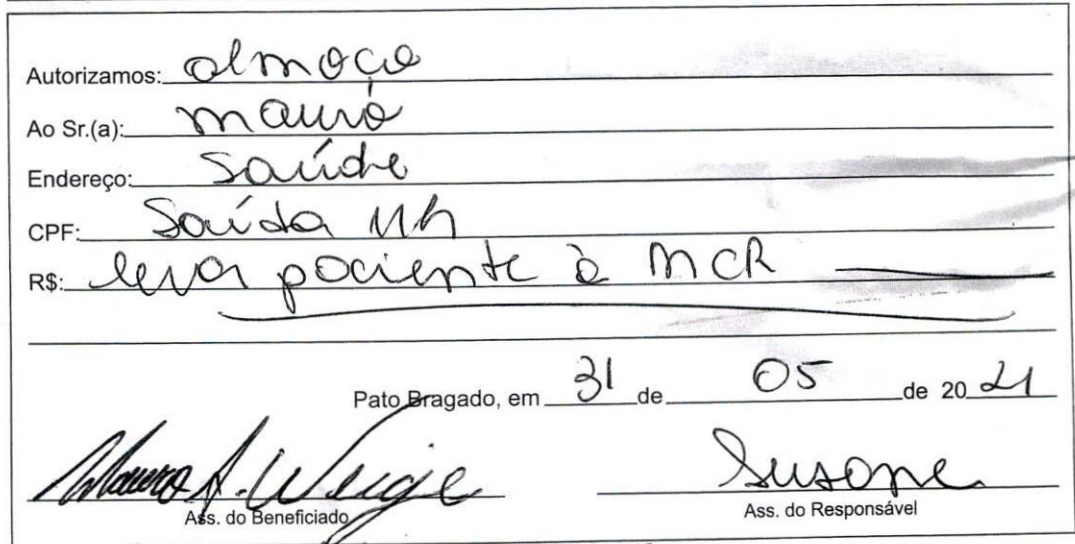 Autorizamos: almoço
Ao Sr.(a): mauro
Endereço: Saúde
CPF: Saída 11h
R$: levar paciente à MCR
Pato Bragado, em 31 de 05 de 20 21
Mauro A.
Susane
Ass. do Beneficiado
Ass. do Responsável